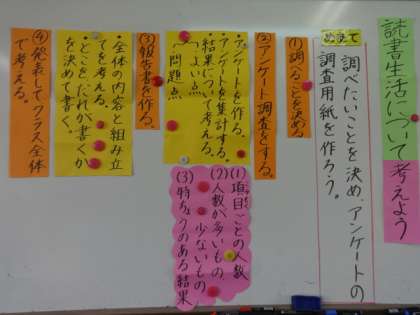 読書生活について考えよう
めあて
調べたいことを決め、アンケートの
調査用紙を作ろう。
(1)調べることを決める
(2)アンケート調査をする。
・アンケートを作る。
・アンケートを集計する。
・結果について考える。
「よい点
「問題点
(1)項目ごとの人数
(2)人数が多いもの
少ないもの
(3)特ちょうのある結果
(3)報告書を作る。
・全体の内容と組み立
てを考える。
・どこをだれが書くか
を決めて書く。
(4)発表してクラス全体
で考える。